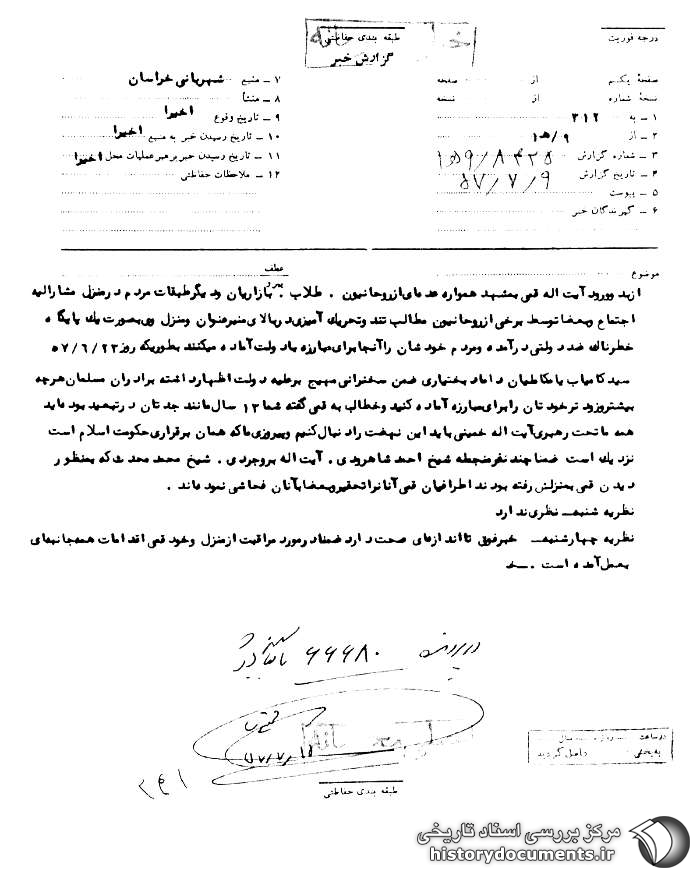 درجه فوریت
طبقه بندی حفاظتی
گزارش خبر
صفحهٔ یکم از صفحه
نسخهٔ شماره از نسخه
۱ – به ۳۱۲
۲ – از ۹/ه۱
۳ – شماره گزارش
۴ – تاریخ گزارش ۵۷/۷/۹
۵ – پیوست
۶ – گیرندگان خبر
۷ – منبع شهربانی خراسان
۸ – منشأ
۹ – تاریخ وقوع اخیرا
۱۰ – تاریخ رسیدن خبر به منبع اخیرا
۱۱ – تاریخ رسیدن خبر برهبر عملیات محل اخیرا
۱۲ – ملاحظات حفاظتی
موضوع
عطف
از بد وورود آیت اله قمی بمشهد همواره عده ای از روحانیون . طلاب . بازاریان و دیگر طبقات مردم در منزل مشارالیه
اجتماع و بعضا توسط برخی از روحانیون مطالب تند و تحریک آمیزی در بالای منبر عنوان و منزل وی بصورت یک پایگاه
خطرناک ضد دولتی در آمده و مردم خودشان را آنجا برای مبارزه با دولت آماده میکنند بطوریکه روز ۵۷/۶/۲۳
سید کامیاب یا مکاطیان داماد بختیاری ضمن سخنرانی مهیج بر علیه دولت اظهار داشته برادران مسلمان هرچه
بیشتر و زود تر خود تان را برای مبارزه آماده کنید و خطاب به قمی گفته شما ۱۳ سال مانند جدتان در تبعید بود ماید
همه ما تحت رهبری آیت اله خمینی باید این نهضت را دنبال کنیم و پیروزی ما که همان برقراری حکومت اسلام است
نزدیک است ضمنا چند نفر منجمله شیخ احمد شاهرودی . آیت اله بروجردی . شیخ محمد محدث که بمنظور
دیدن قمی بمنزلش رفته بودند اطرافیان قمی آنانرا تحقیر و بعضا بآنان فحاشی نموده اند .
نظریه شنبه – نظری ندارد
نظریه چهارشنبه – خبر فوق تا اندازه ای صحت دارد ضمنا در مورد مراقبت از منزل و خود قمی اقدامات همه جانبه ای
بعمل آمده است .
در پرونده ۶۶۶۸۰
طبقه بندی حفاظتی
در ساعت روز سال
به بخش واصل گردید
مرکز بررسی اسناد تاریخی
historydocuments.ir